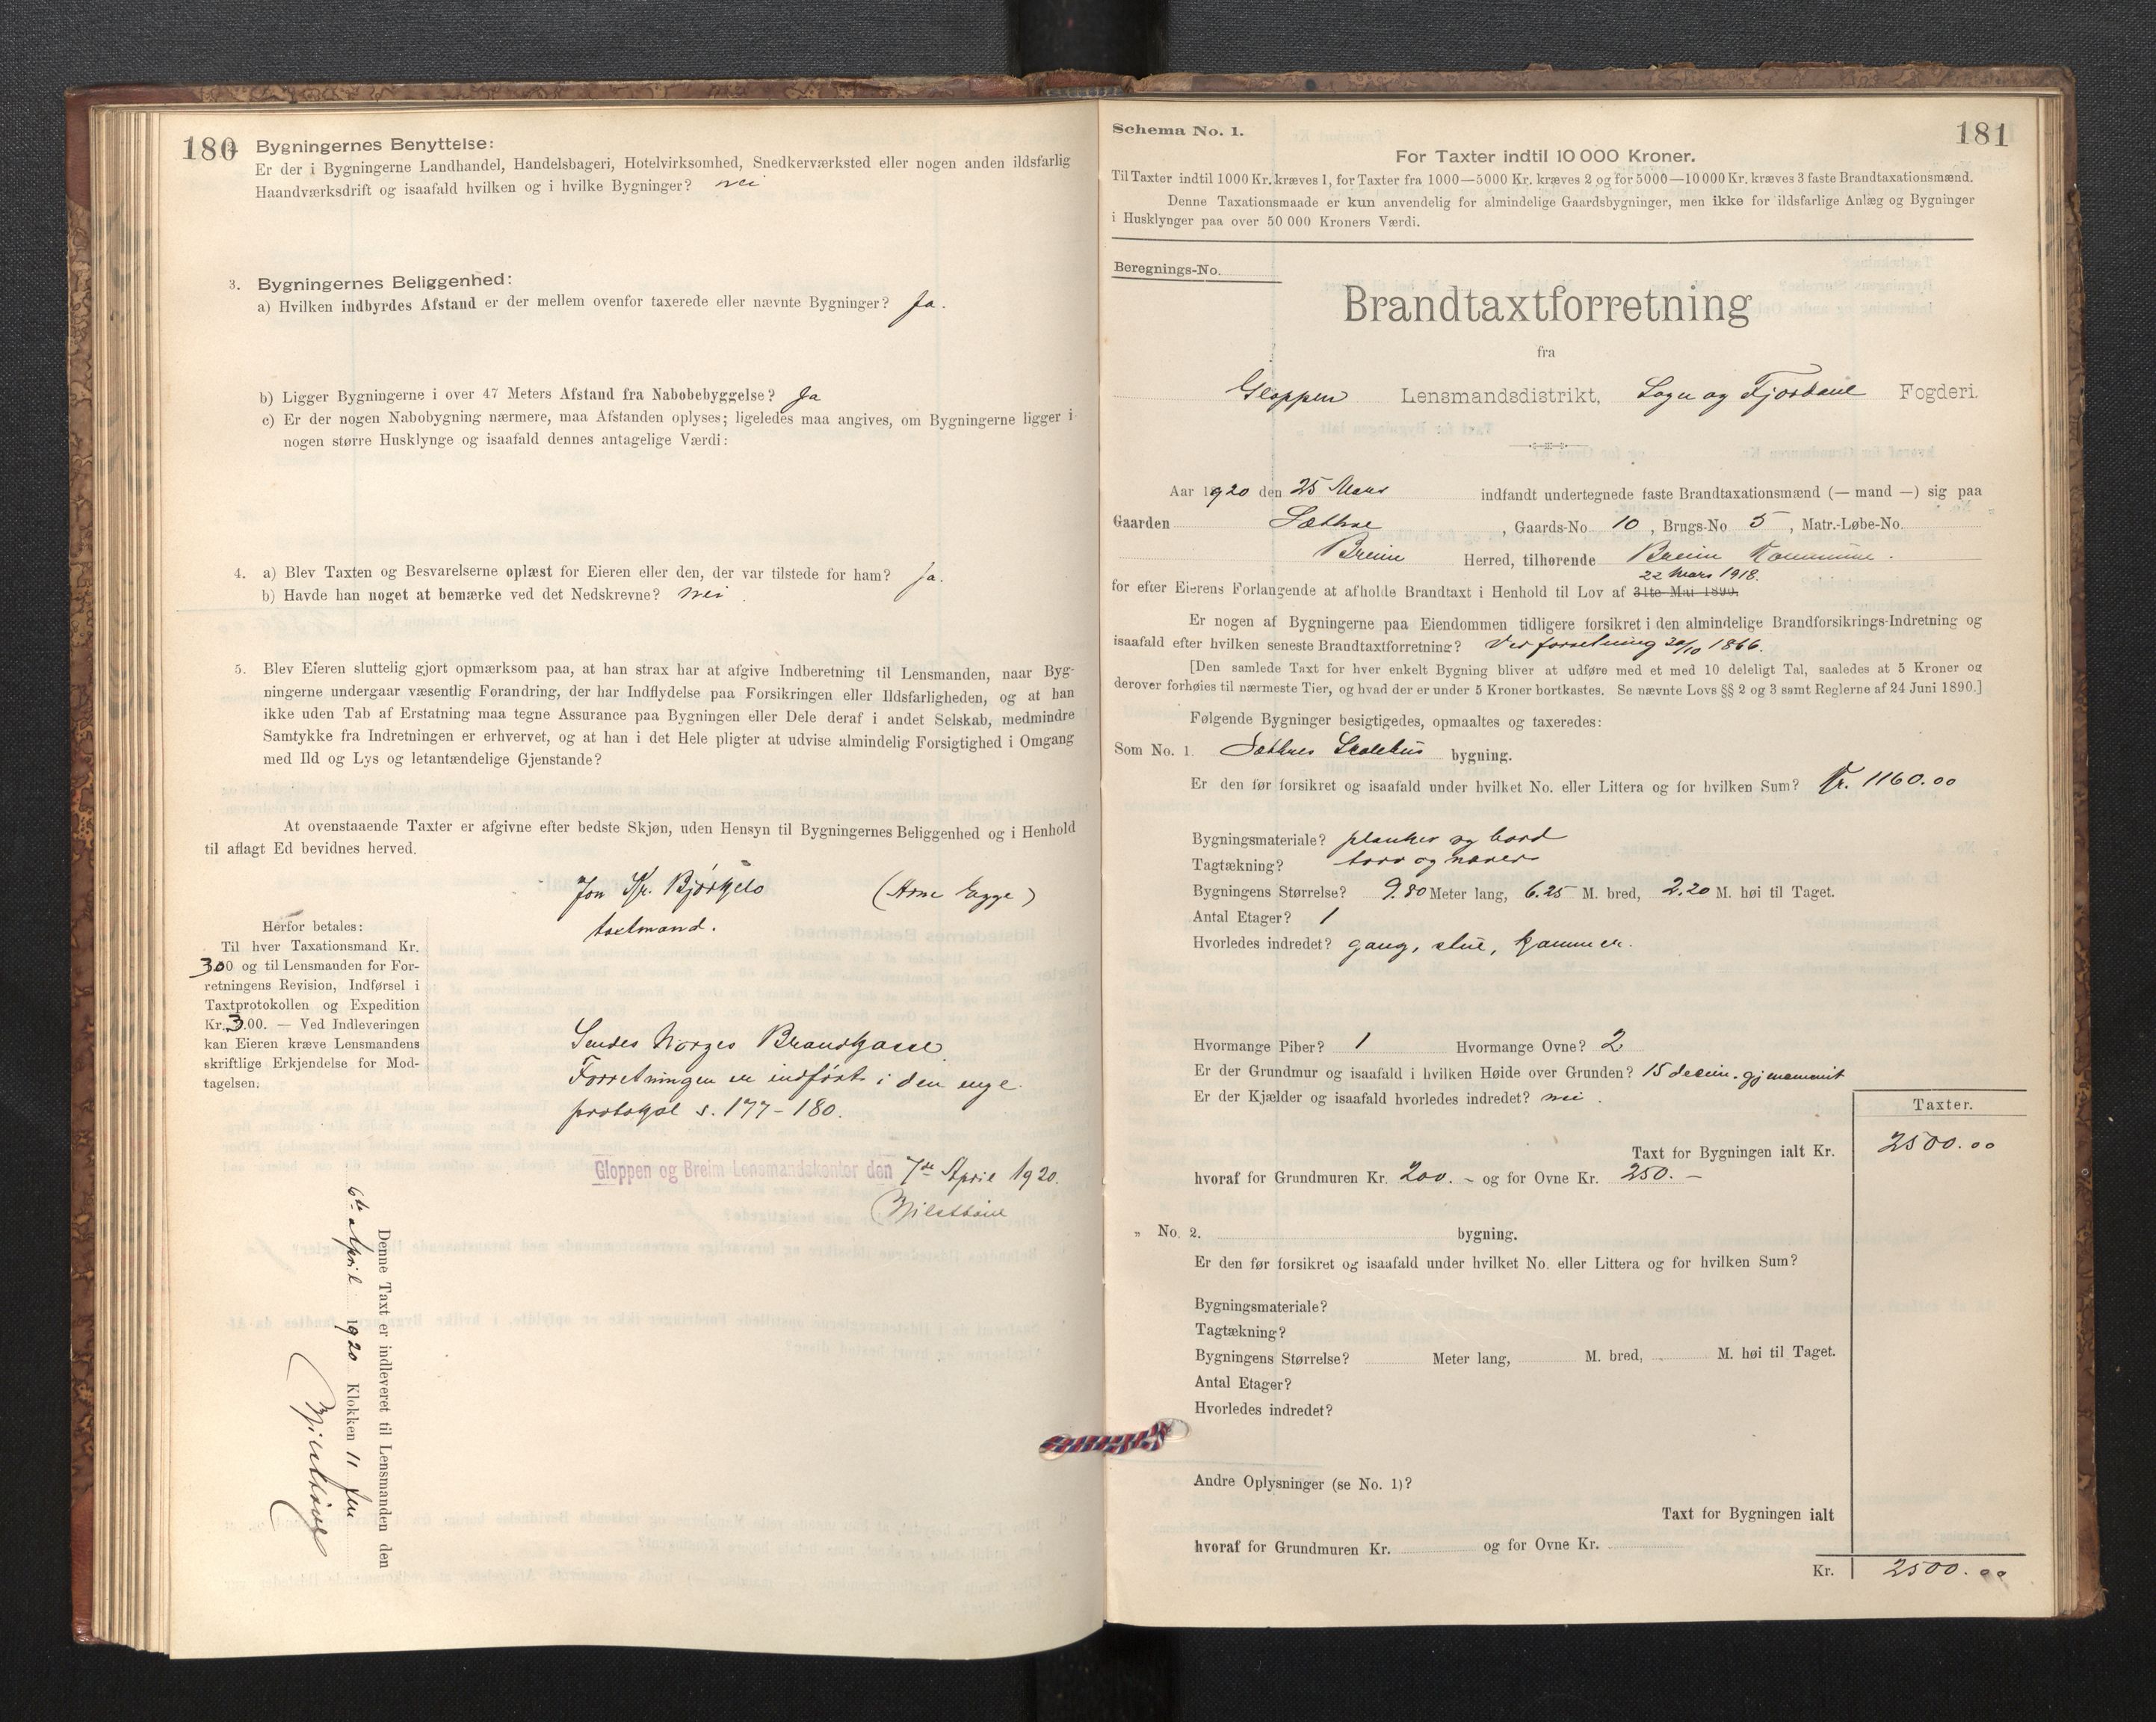 180
2. Bygningernes Benyttelse:
Er der i Bygningerne Landhandel, Handelsbageri, Hotelvirksomhed, Snedkerværksted eller nogen anden ildsfarlig
Haandværksdrift og isaafald hvilken og i hvilke Bygninger? nei
3. Bygningernes Beliggenhed:
a) Hvilken indbyrdes Afstand er der mellem ovenfor taxerede eller nævnte Bygninger? Ja.
b) Ligger Bygningerne i over 47 Meters Afstand fra Nabobebyggelse? Ja
c) Er der nogen Nabobygning nærmere, maa Afstanden oplyses; ligeledes maa angives, om Bygningerne ligger i
nogen større Husklynge og isaafald dennes antagelige Værdi:
4. a) Blev Taxten og Besvarelserne oplæst for Eieren eller den, der var tilstede for ham? Ja.
b) Havde han noget at bemærke ved det Nedskrevne? nei
5. Blev Eieren sluttelig gjort opmærksom paa, at han strax har at afgive Indberetning til Lensmanden, naar Byg-
ningerne undergaar væsentlig Forandring, der har Indflydelse paa Forsikringen eller Ildsfarligheden, og at han
ikke uden Tab af Erstatning maa tegne Assurance paa Bygningen eller Dele deraf i andet Selskab, medmindre
Samtykke fra Indretningen er erhvervet, og at han i det Hele pligter at udvise almindelig Forsigtighed i Omgang
med Ild og Lys og letantændelige Gjenstande?
At ovenstaaende Taxter er afgivne efter bedste Skjøn, uden Hensyn til Bygningernes Beliggenhed og i Henhold
til aflagt Ed bevidnes herved.
Jon Kr. Bjørkelo (Arne Egge)
takstmand.
Herfor betales:
Til hver Taxationsmand Kr.
3.00 og til Lensmanden for For-
retningens Revision, Indførsel i
Taxtprotokollen og Expedition
Kr. 3.00. — Ved Indleveringen
kan Eieren kræve Lensmandens
skriftlige Erkjendelse for Mod-
tagelsen.
Sendes Norges Brandkasse.
Forretningen er indført i den nye
protokol s. 177-180.
Gloppen og Breim Lensmandskontor den 7de April 1920.
Denne Taxt er indleveret til Lensmanden den
6te April 1920 Klokken 11 fm
Schema No. 1.
181
For Taxter indtil 10 000 Kroner.
Til Taxter indtil 1000 Kr. kræves 1, for Taxter fra 1000—5000 Kr. kræves 2 og for 5000—10 000 Kr. kræves 3 faste Brandtaxationsmænd.
Denne Taxationsmaade er kun anvendelig for almindelige Gaardsbygninger, men ikke for ildsfarlige Anlæg og Bygninger
i Husklynger paa over 50 000 Kroners Værdi.
Beregnings-No.
Brandtaxtforretning
fra
Gloppen Lensmandsdistrikt, Sogn og Fjordane Fogderi.
Aar 1920 den 25 Mars indfandt undertegnede faste Brandtaxationsmænd (— mand —) sig paa
Gaarden Sæthre, Gaards-No 10, Brugs-No 5, Matr.-Løbe-No.
Breim Herred, tilhørende Breim Kommune.
22 mars 1918.
for efter Eierens Forlangende at afholde Brandtaxt i Henhold til Lov af 31te Mai 1890.
Er nogen af Bygningerne paa Eiendommen tidligere forsikret i den almindelige Brandforsikrings-Indretning og
isaafald efter hvilken seneste Brandtaxtforretning? Ved forretning 30/10 1866.
[Den samlede Taxt for hver enkelt Bygning bliver at udføre med et med 10 deleligt Tal, saaledes at 5 Kroner og
derover forhøies til nærmeste Tier, og hvad der er under 5 Kroner bortkastes. Se nævnte Lovs §§ 2 og 3 samt Reglerne af 24 Juni 1890.]
Følgende Bygninger besigtigedes, opmaaltes og taxeredes:
Som No. 1. Sæthres Skolehus bygning.
Er den før forsikret og isaafald under hvilket No. eller Littera og for hvilken Sum? Kr. 1160.00
Bygningsmateriale? planker og bord
Tagtækning? torv og næver
Bygningens Størrelse? 9.80 Meter lang, 6.25 M. bred, 2.20 M. høi til Taget.
Antal Etager? 1
Hvorledes indredet? gang, stue, kammer.
Hvormange Piber? 1 Hvormange Ovne? 2
Er der Grundmur og isaafald i hvilken Høide over Grunden? 15 decim.
Er der Kjælder og isaafald hvorledes indredet? nei.
Taxter.
Taxt for Bygningen ialt Kr. 2500.00
hvoraf for Grundmuren Kr. 200. - og for Ovne Kr. 250. -
„ No. 2. bygning.
Er den før forsikret og isaafald under hvilket No. eller Littera og for hvilken Sum?
Bygningsmateriale?
Tagtækning?
Bygningens Størrelse? Meter lang, M. bred, M. høi til Taget.
Antal Etager?
Hvorledes indredet?
Andre Oplysninger (se No. 1)?
Taxt for Bygningen ialt
hvoraf for Grundmuren Kr. og for Ovne Kr.
Kr. 2500.00